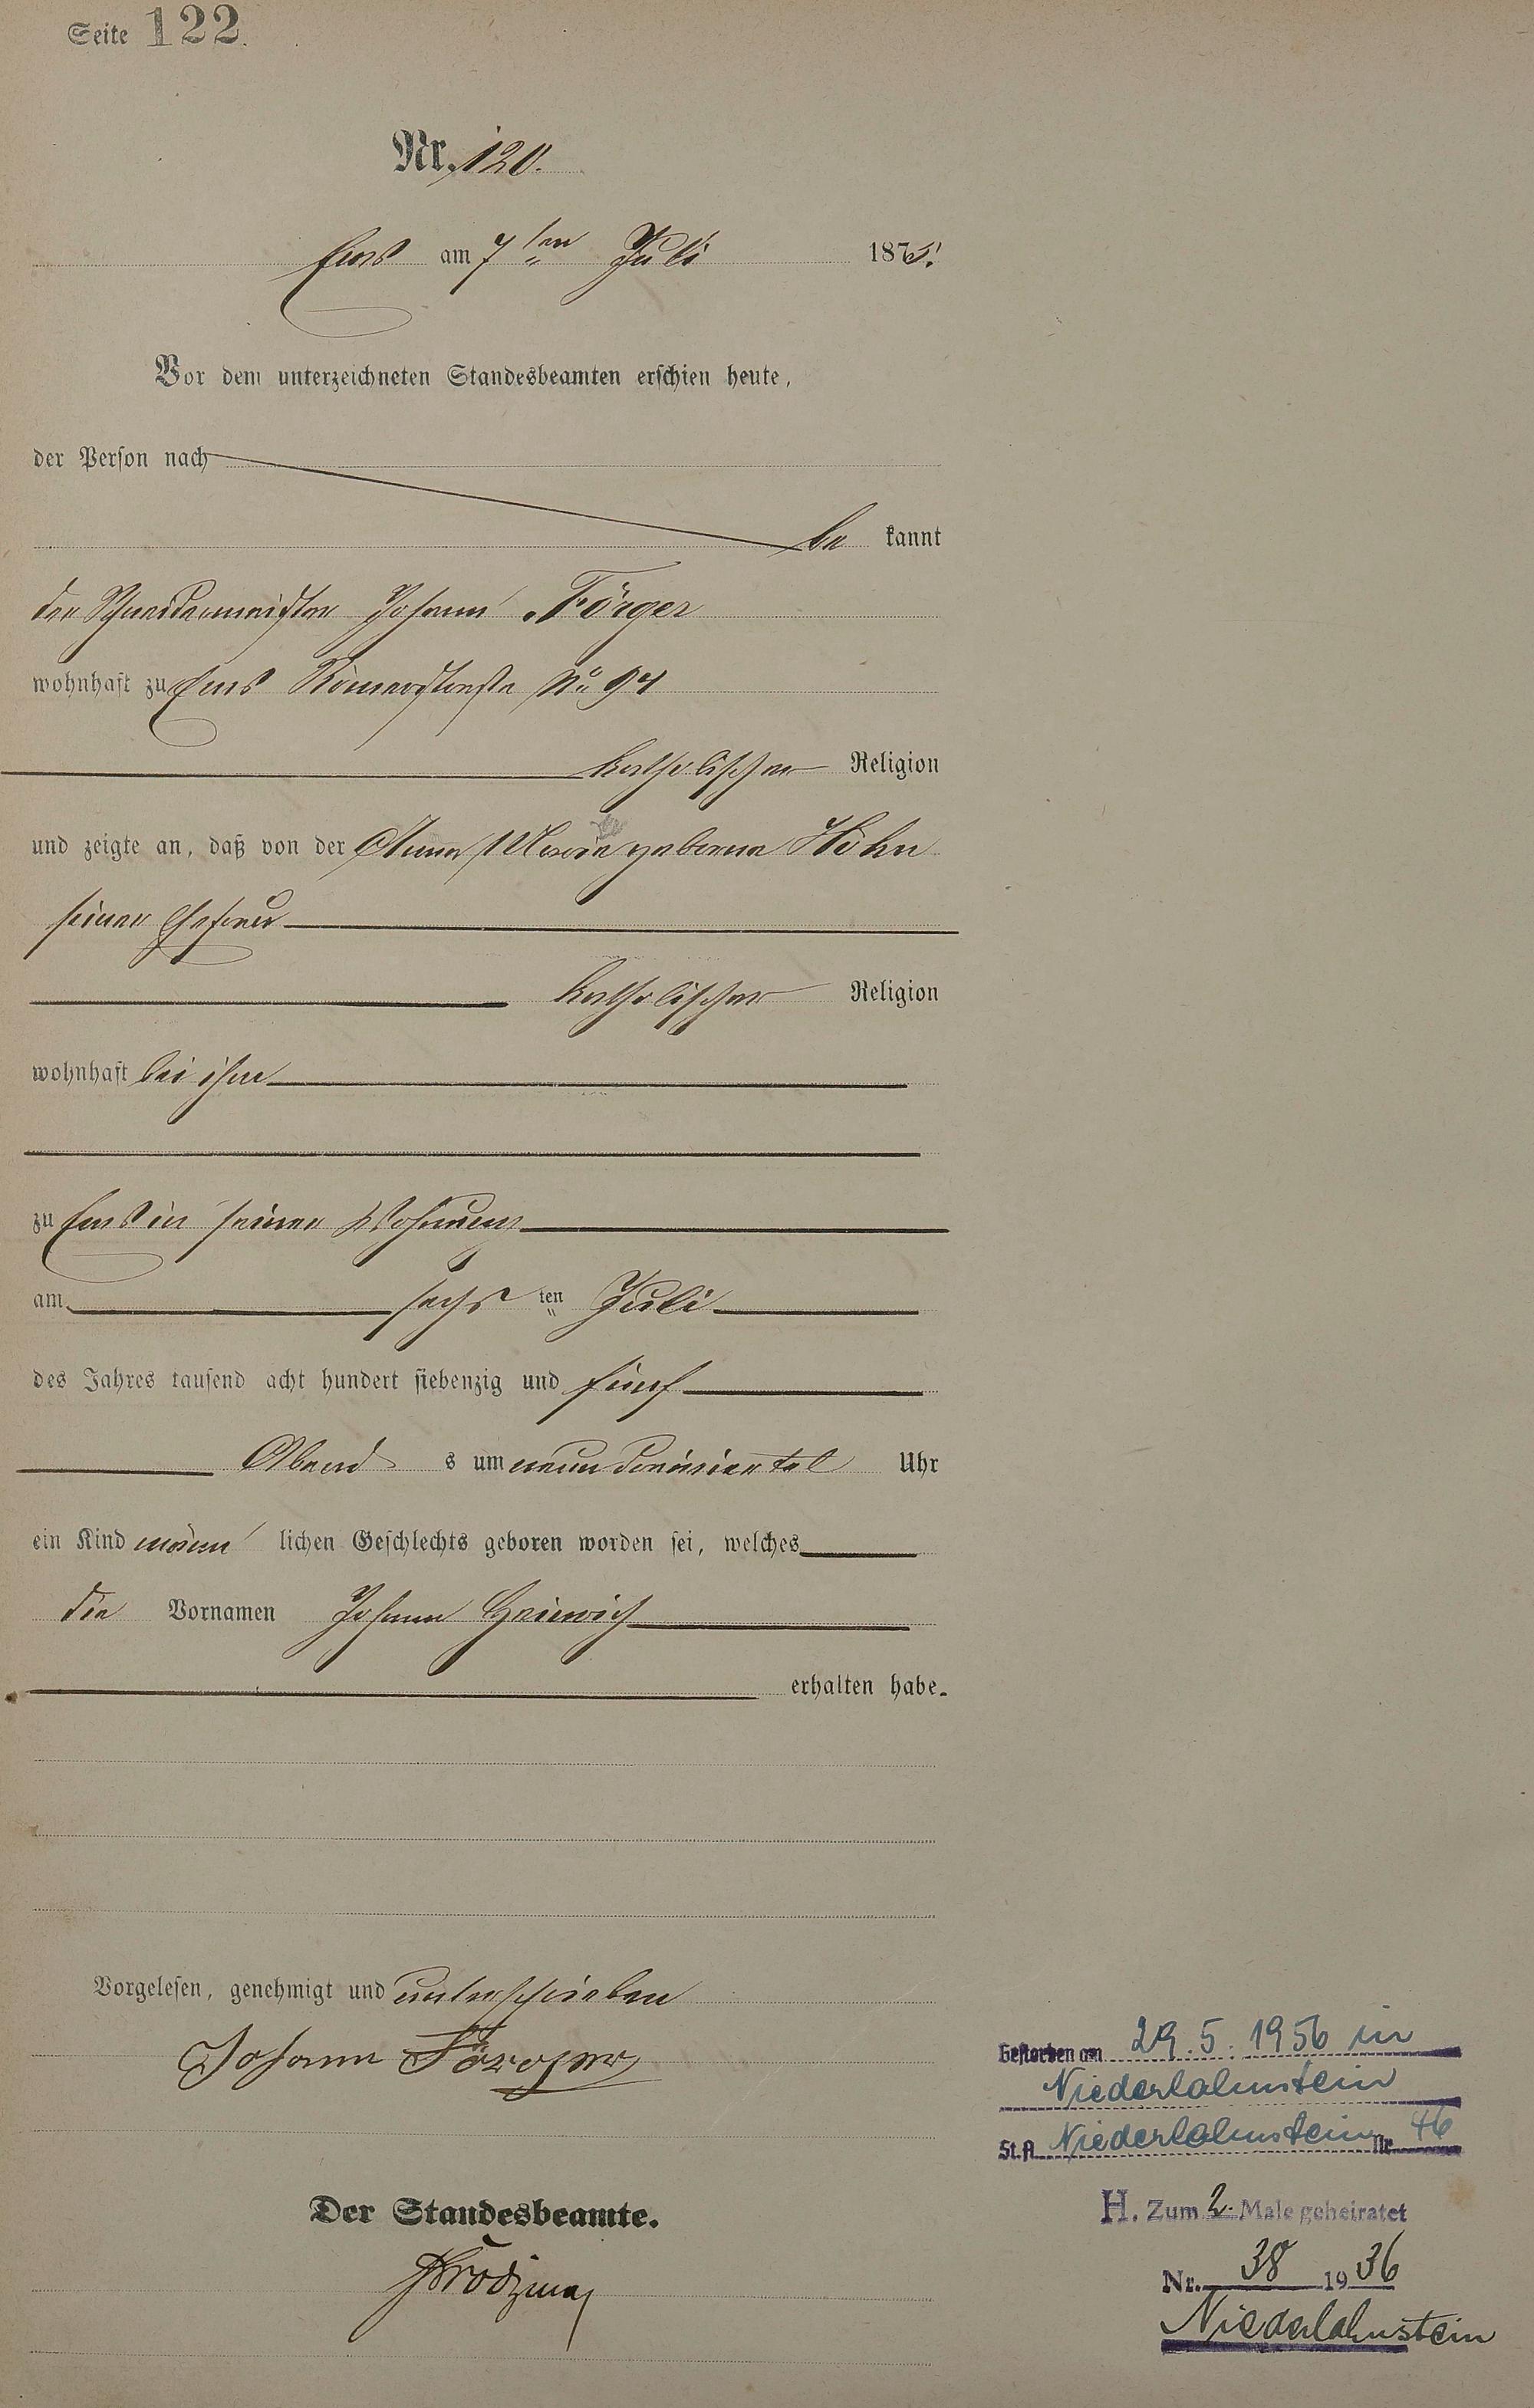 Seite 122.
Nr. 120.
Ems am 7ten Juli 1875.
Vor dem unterzeichneten Standesbeamten erschien heute,
der Person nach
be kannt
der Schneidermeister Johann Förger
wohnhaft zu Ems Römerstraße No 94
katholischer Religion
und zeigte an, daß von der Anna Maria geborene Höhn
seiner Ehefrau
katholischer Religion
wohnhaft bei ihm
zu Ems in seiner Wohnung
am sechs ten Juli
des Jahres tausend acht hundert siebenzig und fünf
Abend s um neun dreiviertel Uhr
ein Kind männ lichen Geschlechts geboren worden sei, welches
die Vornamen Johann Heinrich
erhalten habe.
Vorgelesen, genehmigt und unterschrieben
Johann Förger
Der Standesbeamte.
Gestorben am 29.5.1956 in
Niederlahnstein
St.A. Niederlahnstein Nr. 46
H. Zum 2. Male geheiratet
Nr. 38 1936
Niederlahnstein